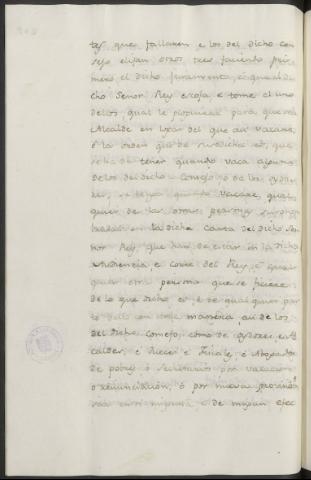 tes que fallaren e los del dicho con
sejo elijan otros tres faciendo pri
mero el dicho juramento, é que el di
cho Señor Rey escoja e tome el uno
dellos, qual le ploguiere para que sea
Alcalde en logar del que asi vacare,
é la orden que de suso dicha es, que
se ha de tener quando vaca alguno
de los del dicho Consejo ó de los oydo
res, se tenga quando vacare, quales
quier de las otras personas
en la dicha Carta del dicho Se
ñor Rey, que han de estar en la dicha
Audiencia, e Corte del Rey, é
quier otra persona que se
de lo que dicho es, é de qualquier par
te dello en toda manera, asi de los
del dicho Consejo, como de oydores, e Al
caldes, é Jueces é Fiscales, é Abogados
de pobres, ó Secretarios por vacacion
o renunciacion, ó por nueva provision
sea en si ninguna e de ningun efec